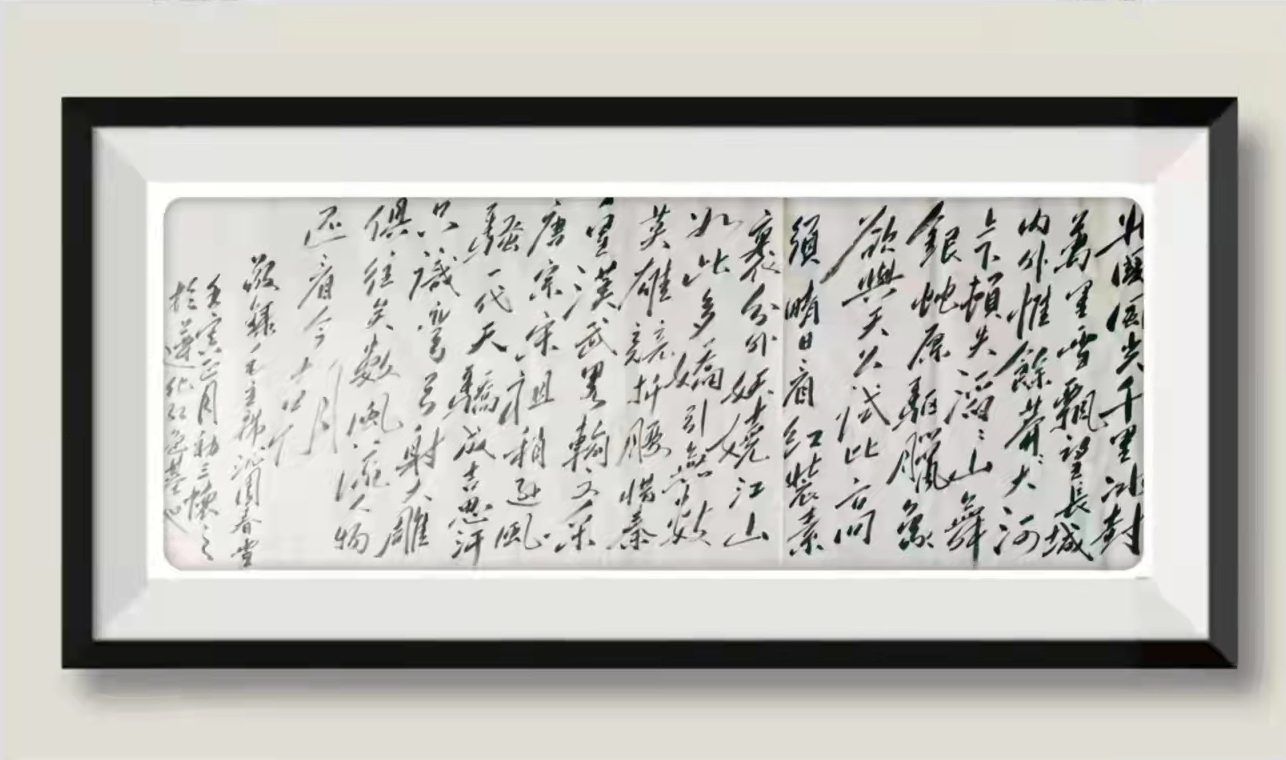 北国风光千里冰封
萬里雪飄望長城
内外惟餘莽大河
上下頓失滔〻山舞
銀蛇原馳臘象
欲與天公試比高
須晴日看红裝素
裹分外妖嬈江山
如此多嬌引無数
英雄競折腰惜秦
皇漢武畧輸文采
唐宗宋祖稍逊風
騷一代天驕成吉思汗
只識弯弓射大雕
俱往矣数風流人物
还看今朝
敬錄毛主席沁园春雪
壬寅正月初三懷之
於遵化